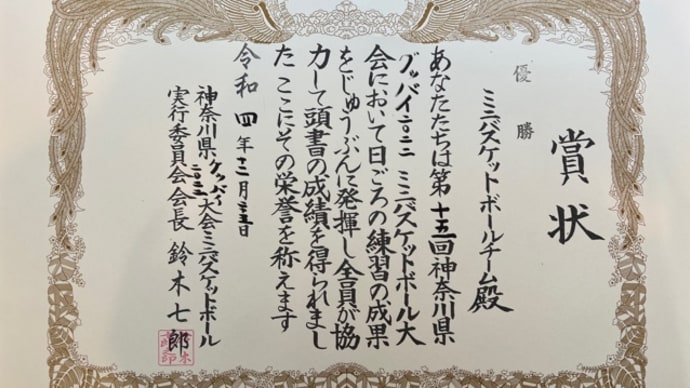 賞状
優勝
ミニバスケットボールチーム殿
あなたたちは第十五回神奈川県
グッバイ二〇二二ミニバスケットボール大
会において日ごろの練習の成果
をじゅうぶんに発揮し全員が協
力して頭書の成績を得られまし
た ここにその栄誉を称えます
令和四年十二月二十五日
神奈川県グッバイ二〇二二大会ミニバスケットボール
実行委員会会長 鈴木七郎